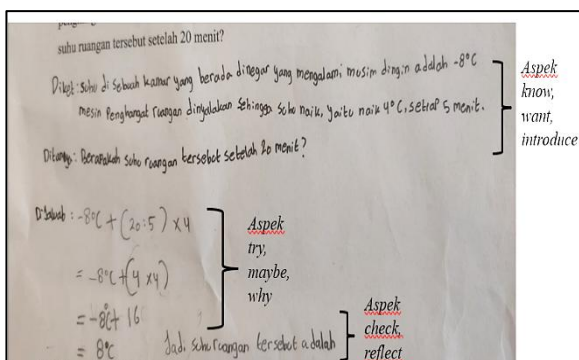 suhu ruangan tersebut setelah 20 menit?
Diket : Suhu di sebuah kamar yang berada dinegar yang mengalami musim dingin adalah -8°C
mesin Penghangat ruangan dinyalakan sehingga suhu naik, yaitu naik 4°C, setiap 5 menit.
Ditanya : Berapakah suhu ruangan tersebut setelah 20 menit?
Dijawab : -8°C + (20:5) x 4
= -8°C + (4 x 4)
= -8°C + 16
= 8°C Jadi suhu ruangan tersebut adalah
Aspek
know,
want,
introduce
Aspek
try,
maybe,
why
Aspek
check,
reflect